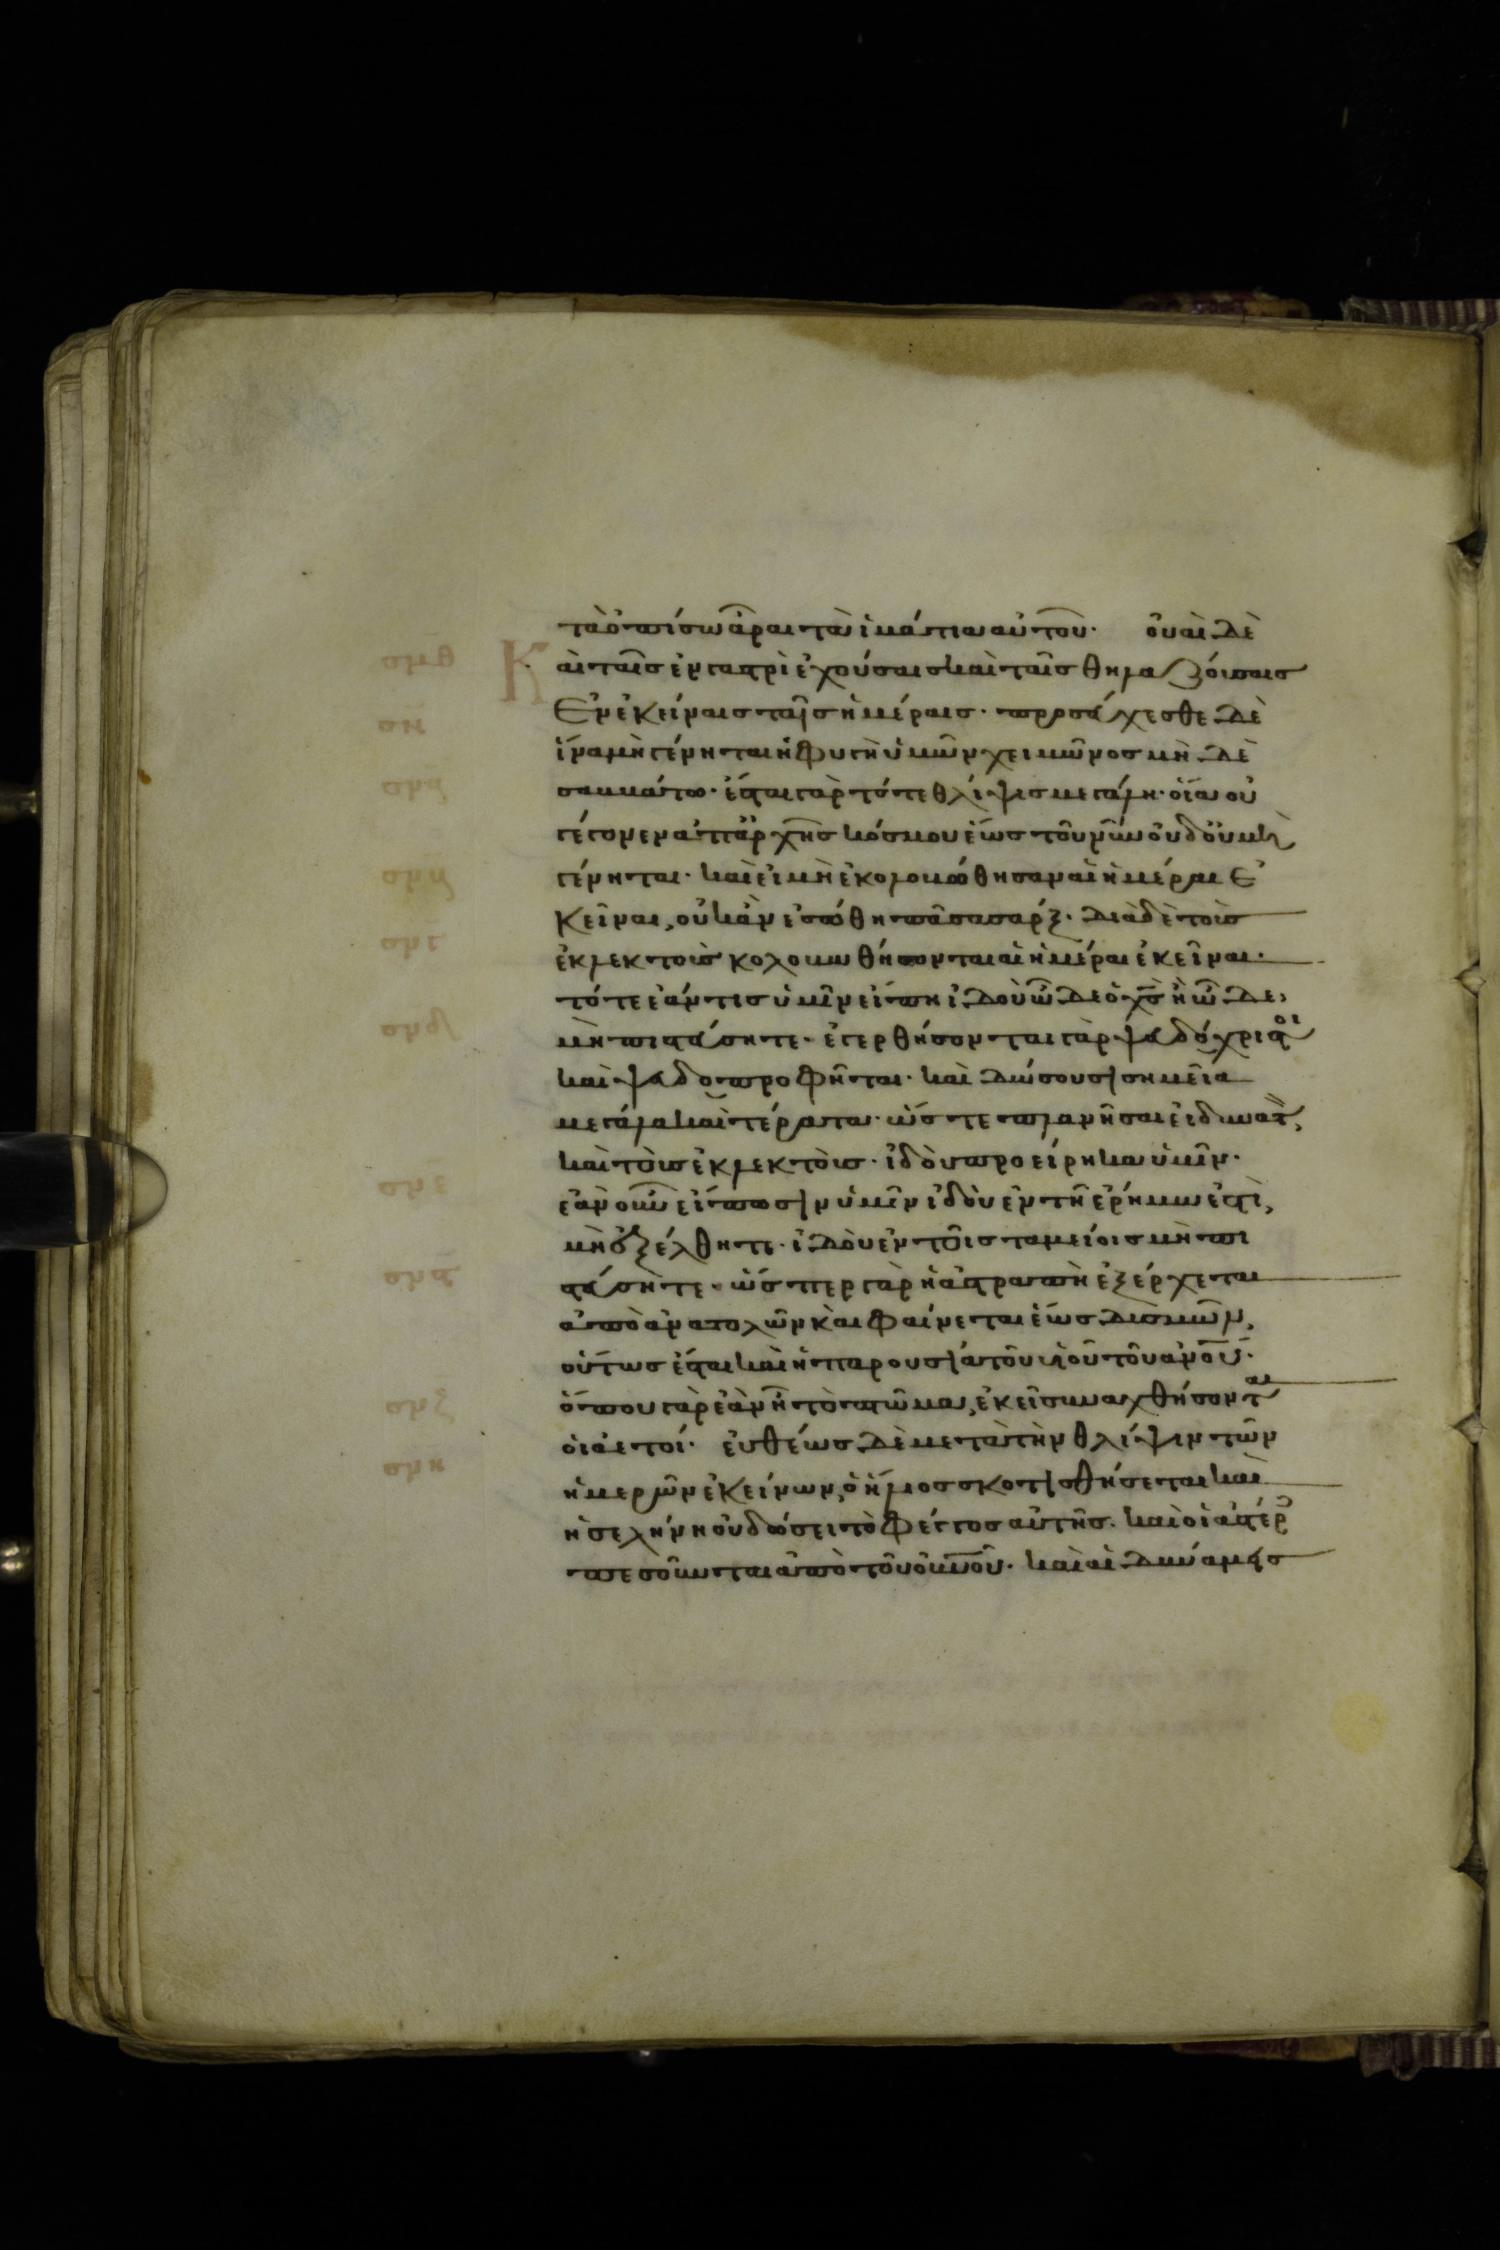 τὰ ὀπίσω ἆραι τὰ ἱμάτια αὐτοῦ· οὐαὶ δὲ
Καὶ ταῖς ἐν γαστρὶ ἐχούσαις καὶ ταῖς θηλαζούσαις
Ἐν ἐκείναις ταῖς ἡμέραις· προσεύχεσθε δὲ
ἵνα μὴ γένηται ἡ φυγὴ ὑμῶν χειμῶνος μὴ δὲ
σαββάτω· ἔσται γὰρ τότε θλίψις μεγάλη· οἵα οὐ
γέγονεν ἀπ' ἀρχῆς κόσμου ἕως τοῦ νῦν οὐδ' οὐ μὴ
γένηται· καὶ εἰ μὴ ἐκολοβώθησαν αἱ ἡμέραι ἐ
κεῖναι, οὐκ ἂν ἐσώθη πᾶσα σάρξ· διὰ δὲ τοὺς
ἐκλεκτοὺς κολοβωθήσονται αἱ ἡμέραι ἐκεῖναι·
τότε ἐάν τις ὑμῖν εἴπη ἰδοὺ ὧδε ὁ χς ἢ ὧδε,
μὴ πιστεύσητε· ἐγερθήσονται γὰρ ψευδόχριστοι
καὶ ψευδοπροφῆται· καὶ δώσουσι σημεῖα
μεγάλα καὶ τέρατα· ὥστε πλανῆσαι εἰ δυνατ,
καὶ τοὺς ἐκλεκτοὺς· ἰδοὺ προείρηκα ὑμῖν·
ἐὰν οὖν εἴπωσιν ὑμῖν ἰδοὺ ἐν τῆ ἐρήμω ἐστὶ,
μὴ ἐξέλθητε· ἰδοὺ ἐν τοῖς ταμείοις μὴ πι
στεύσητε· ὥσπερ γὰρ ἡ ἀστραπὴ ἐξέρχεται
ἀπὸ ἀνατολῶν καὶ φαίνεται ἕως δυσμῶν,
οὕτως ἔσται καὶ ἡ παρουσία τοῦ υἱοῦ τοῦ ἀνου·
ὅπου γὰρ ἐὰν ἦ τὸ πτῶμα, ἐκεῖ συναχθήσονται
οἱ ἀετοί· εὐθέως δὲ μετὰ τὴν θλίψιν τῶν
ἡμερῶν ἐκείνων, ὁ ἥλιος σκοτισθήσεται καὶ
ἡ σελήνη οὐ δώσει τὸ φέγγος αὐτῆς· καὶ οἱ ἀστέρ
πεσοῦνται ἀπὸ τοῦ οὐνοῦ· καὶ αἱ δυνάμεις